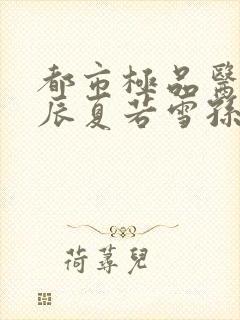 都市極品醫
辰夏若雪孫
荷蕁兒